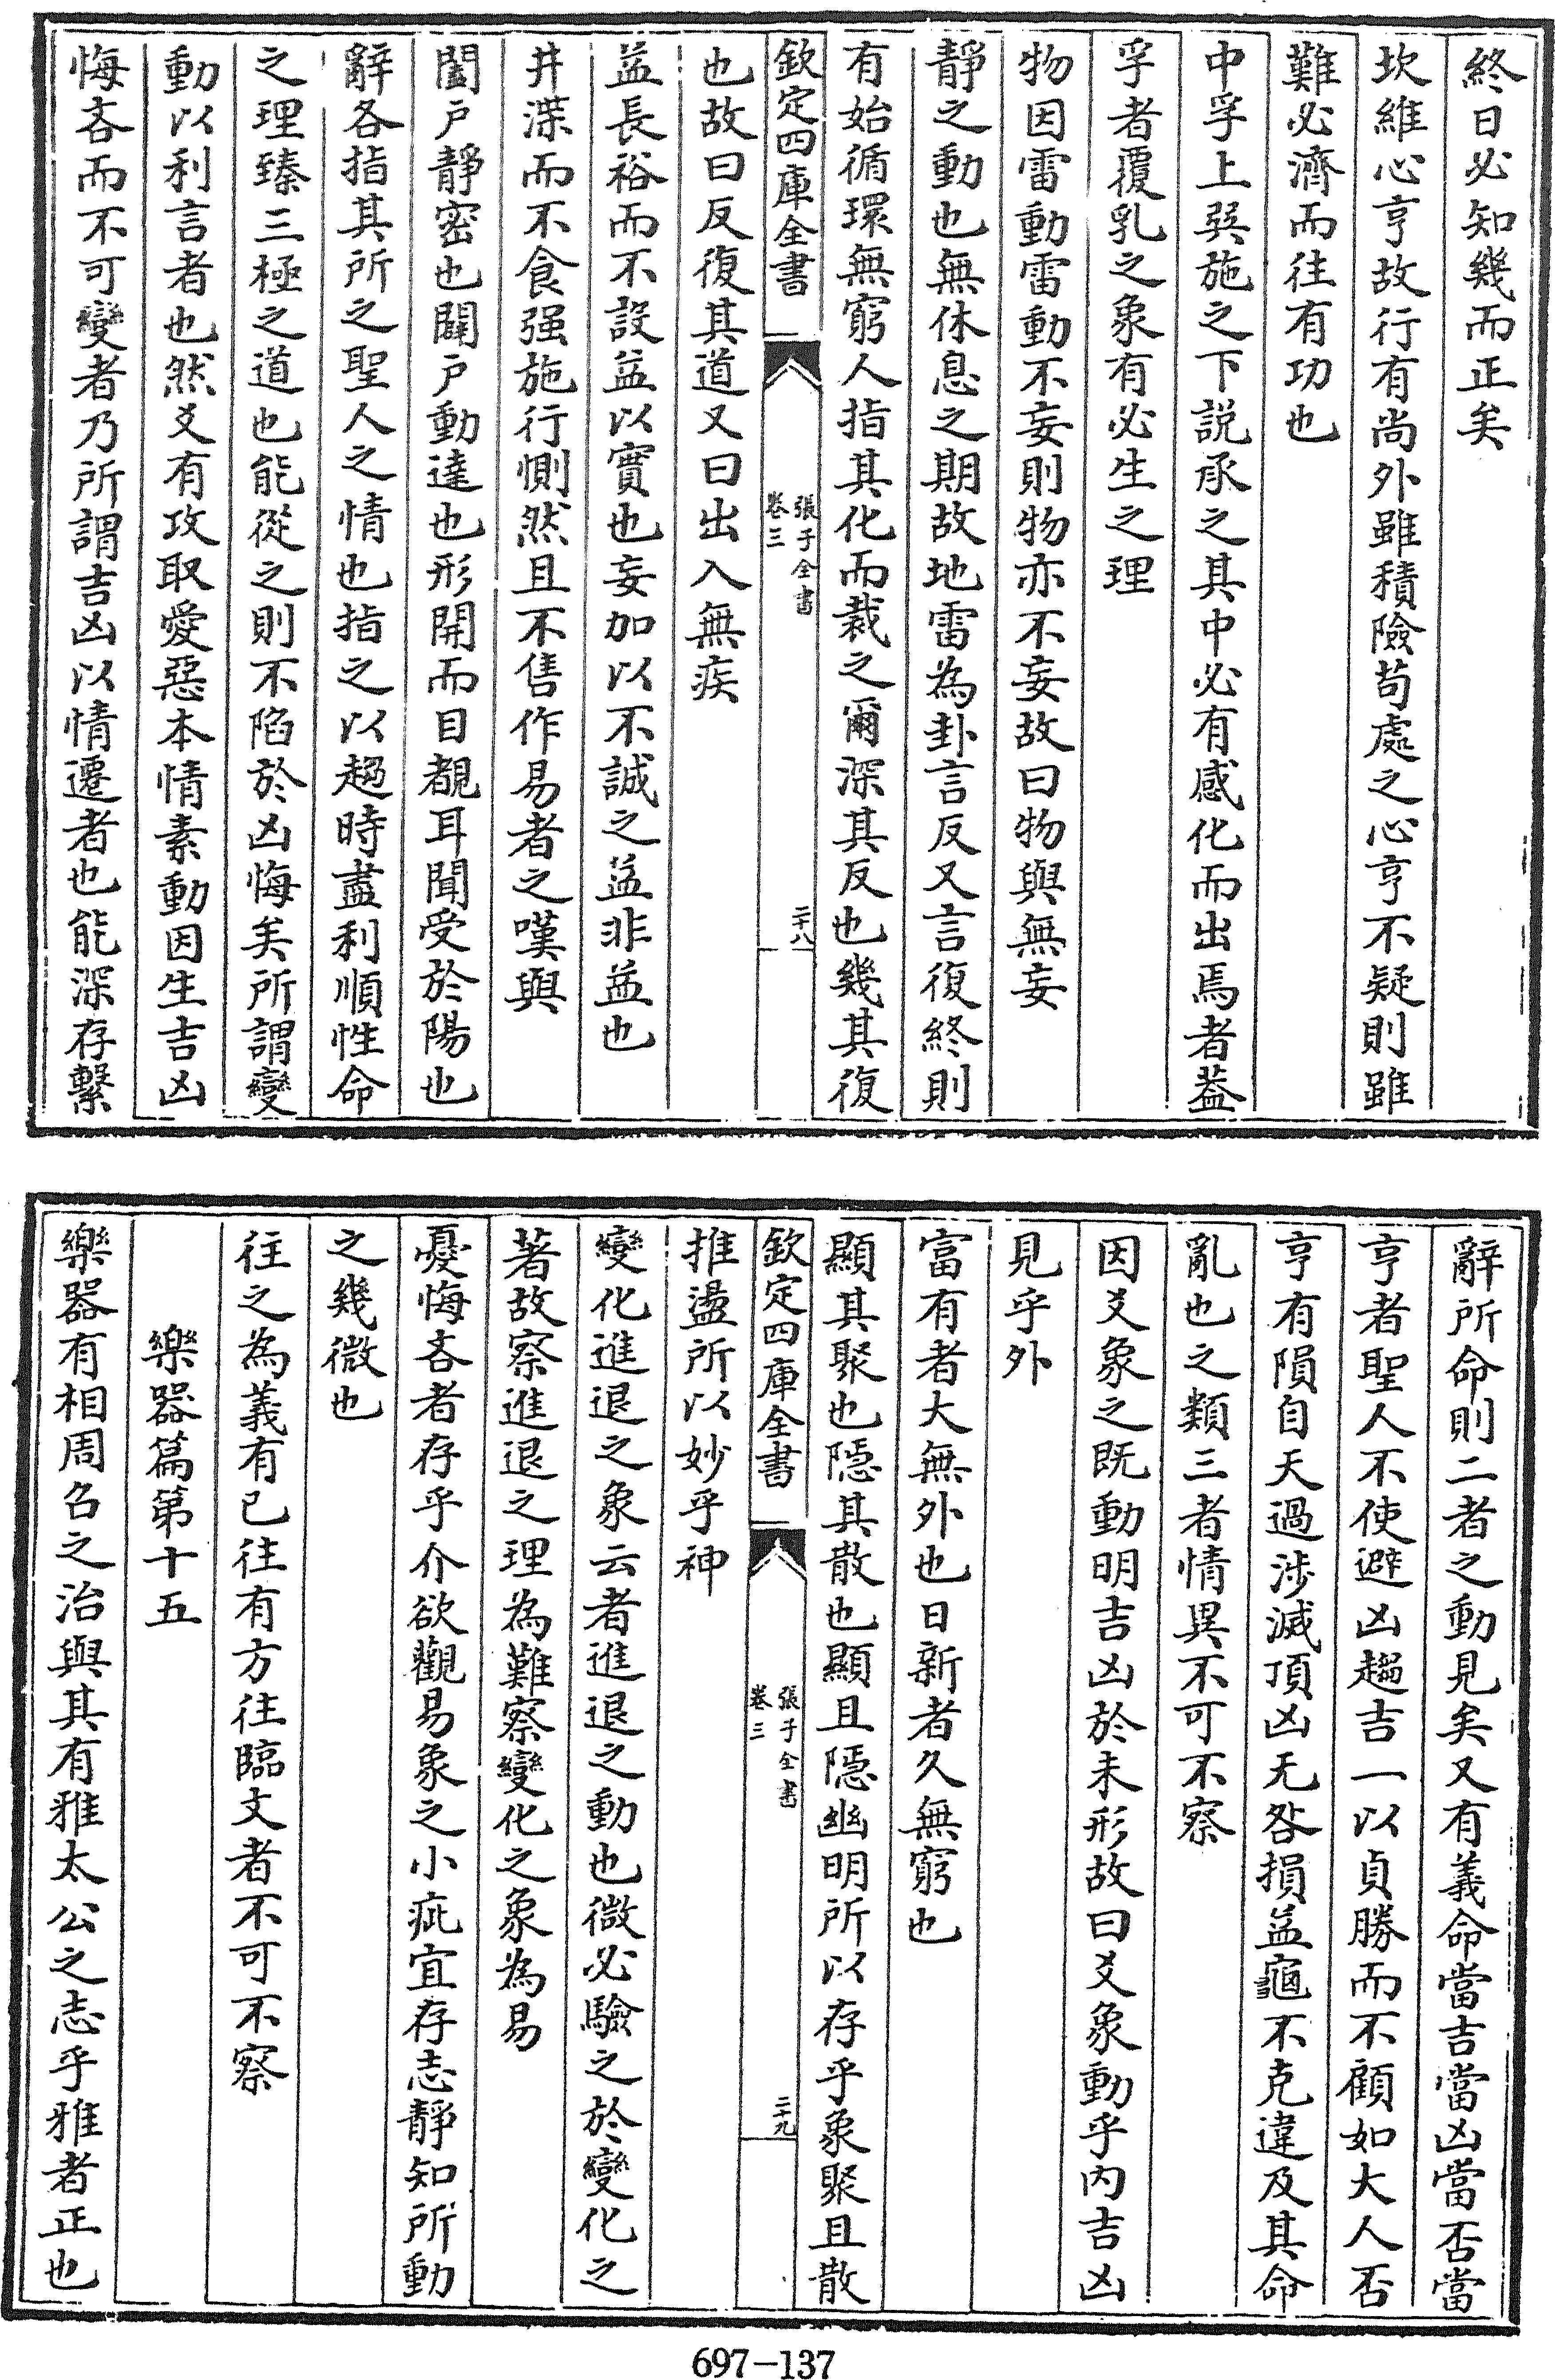 終日必知幾而正矣
坎維心亨故行有尚外雖積險茍處之心亨不疑則雖
難必濟而往有功也
中孚上巽施之下説承之其中必有感化而出焉者葢
孚者覆乳之象有必生之理
物因雷動雷動不妄則物亦不妄故曰物與無妄
靜之動也無休息之期故地雷為卦言反又言復終則
有始循環無窮人指其化而裁之爾深其反也幾其復
欽定四庫全書
張子全書
卷三
二十八
也故曰反復其道又曰出入無疾
益長裕而不設益以實也妄加以不誠之益非益也
井渫而不食强施行惻然且不售作易者之嘆與
闔戸靜密也闢戸動達也形開而目覩耳聞受於陽也
辭各指其所之聖人之情也指之以趨時盡利順性命
之理臻三極之道也能從之則不陷於凶悔矣所謂變
動以利言者也然爻有攻取愛惡本情素動因生吉凶
悔吝而不可變者乃所謂吉凶以情遷者也能深存繫
辭所命則二者之動見矣又有義命當吉當凶當否當
亨者聖人不使避凶趨吉一以貞勝而不顧如大人否
亨有隕自天過涉滅頂凶无咎損益龜不克違及其命
亂也之類三者情異不可不察
因爻象之既動明吉凶於未形故曰爻象動乎内吉凶
見乎外
富有者大無外也日新者久無窮也
顯其聚也隠其散也顯且隠幽明所以存乎象聚且散
欽定四庫全書
張子全書
卷三
二十九
推盪所以妙乎神
變化進退之象云者進退之動也微必驗之於變化之
著故察進退之理為難察變化之象為易
憂悔吝者存乎介欲觀易象之小疵宜存志靜知所動
之幾微也
往之為義有已往有方往臨文者不可不察
樂器篇第十五
樂器有相周召之治與其有雅太公之志乎雅者正也
697-137